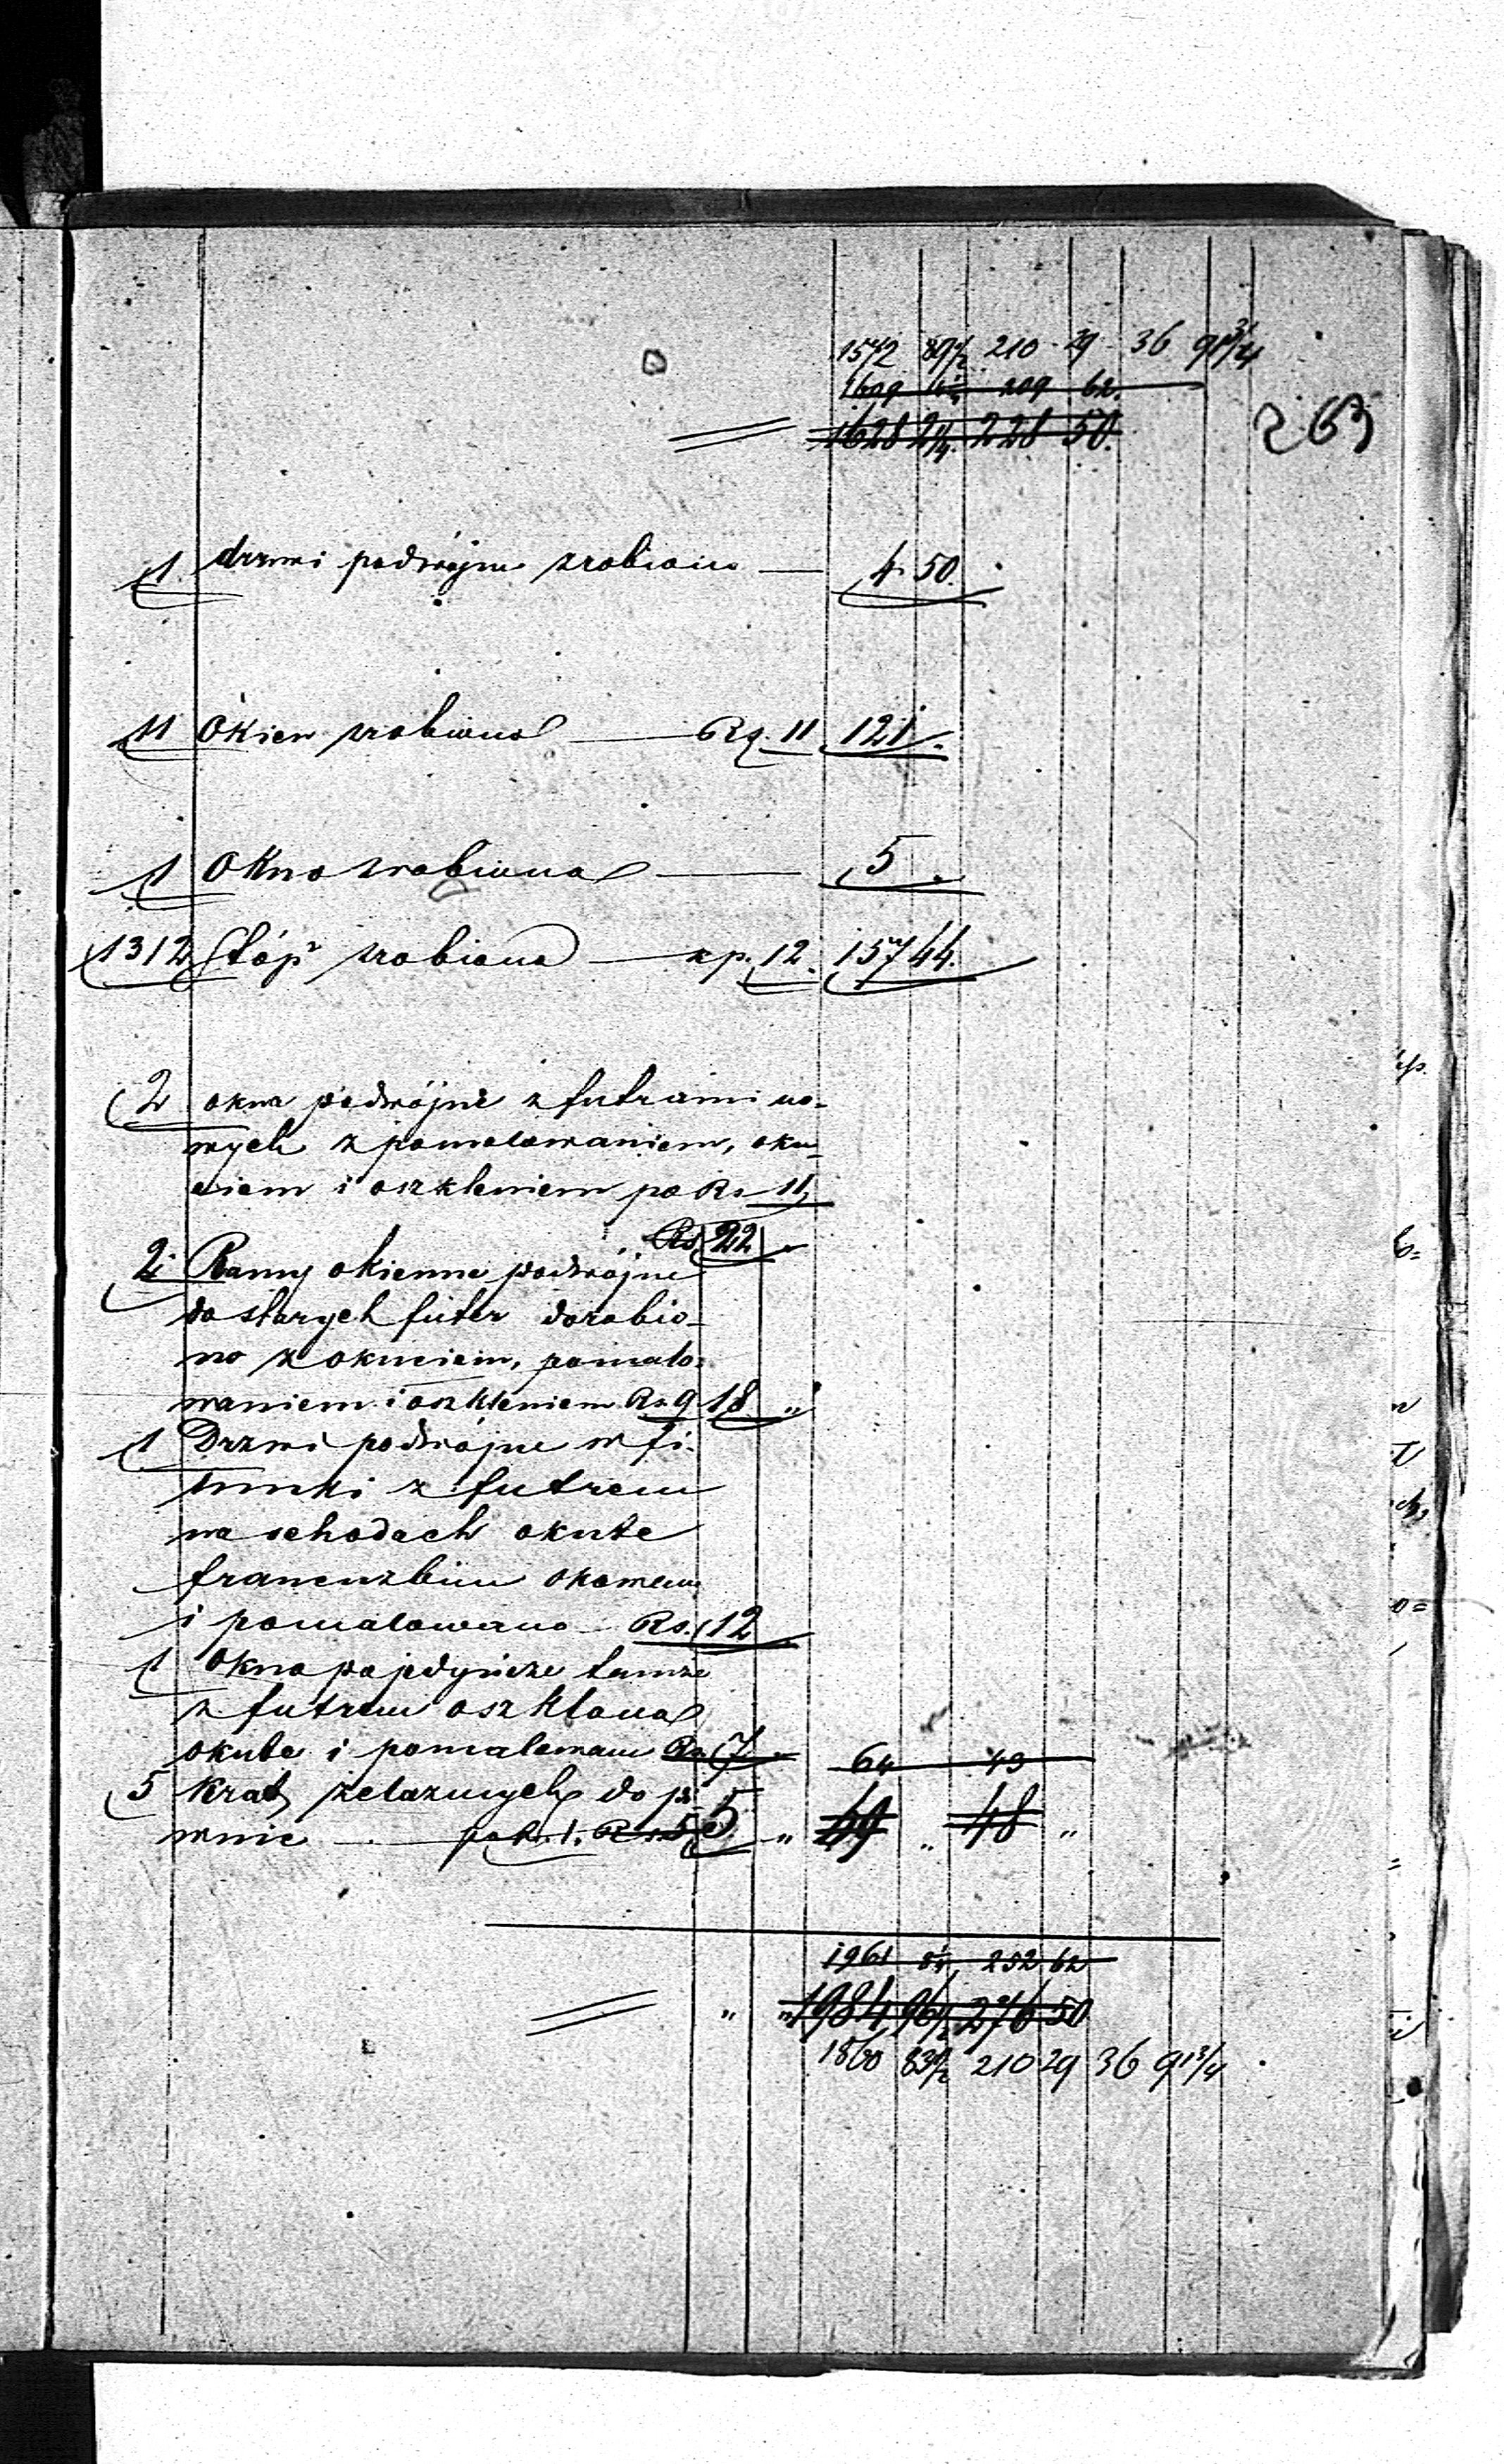 1572 89 1/2 210 29 36 91 3/4
1609 209 62.
1628 21 1/4. 228 50.
263
1 drzwi podwójne zrobiono — 4. 50.
11 Okien zrobiono — Rs. 11 121.
1 Okno zrobiono — 5 „
1312 Stóp zrobiono — kp. 12. 157 44.
2 okna podwójne z futrami no-
wych z pomalowaniem, oku-
ciem i oszkleniem po Rs 11,
Rs 22 „
2 Ramy okienne podwójne
do starych futer dorobio-
no z okuciem, pomalo-
waniem i oszkleniem Rs 9 18 „
1 Drzwi podwójne w fi-
lunki z futrem
na schodach okute
francuzkiem okowem
i pomalowano Rs. 12
1 Okno pojedyńcze tamże
z futrem oszklono
okute i pomalowane Rs. 7 „ 64 43
5 Krat żelaznych do pi-
wnic — po Rs. 1. Rs. 5 5 „ 49 „ 48 „
1961 232 62
„ „ 1984 96 1/2 276 50
1860 83 1/2 210 29 36 91 3/4